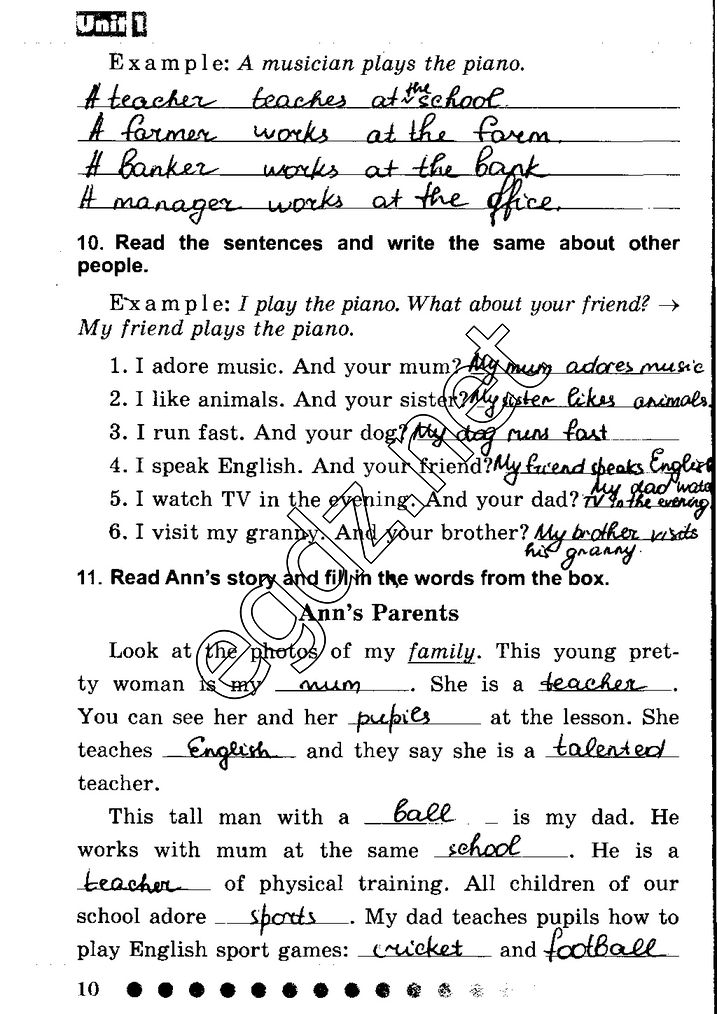 Unit 1
Example: A musician plays the piano.
A teacher teaches at the school.
A farmer works at the farm.
A banker works at the bank
A manager works at the office.
10. Read the sentences and write the same about other
people.
Example: I play the piano. What about your friend? →
My friend plays the piano.
1. I adore music. And your mum? My mum adores music
2. I like animals. And your sister? My sister likes animals.
3. I run fast. And your dog? My dog runs fast
4. I speak English. And your friend? My friend speaks English
5. I watch TV in the evening. And your dad? My dad watc
TV in the evening.
6. I visit my granny. And your brother? My brother visits
his granny.
11. Read Ann's story and fill in the words from the box.
Ann's Parents
Look at the photos of my family. This young pret-
ty woman is my mum. She is a teacher.
You can see her and her pupils at the lesson. She
teaches English and they say she is a talented
teacher.
This tall man with a ball is my dad. He
works with mum at the same school. He is a
teacher of physical training. All children of our
school adore sports. My dad teaches pupils how to
play English sport games: cricket and football
10
egdz.net